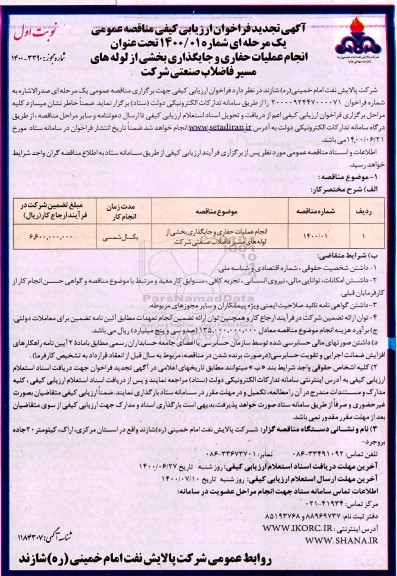 نوبت اول
آگهی تجدید فراخوان ارزیابی کیفی مناقصه عمومی
یک مرحله ای شماره ۱۴۰۰/۰۱ تحت عنوان
انجام عملیات حفاری و جایگذاری بخشی از لوله های
مسیر فاضلاب صنعتی شرکت
شماره مجوز: ۱۴۰۰-۳۳۹۰
شرکت پالایش نفت امام خمینی (ره) شازند در نظر دارد فراخوان ارزیابی کیفی جهت برگزاری مناقصه عمومی یک مرحله ای صدرالاشاره به
شماره فراخوان ۲۰۰۰۰۹۲۴۴۷۰۰۰۰۷۱ را از طریق سامانه تدارکات الکترونیکی دولت (ستاد) برگزار نماید. ضمناً خاطر نشان میسازد کلیه
مراحل برگزاری فراخوان ارزیابی کیفی اعم از دریافت و تحویل اسناد استعلام ارزیابی کیفی تا ارسال دعوتنامه و سایر مراحل مناقصه، از طریق
درگاه سامانه تدارکات الکترونیکی دولت به آدرس www.setadiran.ir انجام خواهد شد. ضمناً تاریخ انتشار فراخوان در سامانه ستاد مورخ
۱۴۰۰/۰۶/۲۱ می باشد.
اطلاعات و اسناد مناقصه عمومی مورد نظر پس از برگزاری فرآیند ارزیابی کیفی از طریق سامانه ستاد به اطلاع مناقصه گران واجد شرایط
خواهد رسید.
۱- موضوع مناقصه:
الف) شرح مختصر کار:
ردیف شماره مناقصه موضوع مناقصه مدت زمان انجام کار مبلغ تضمین شرکت در فرآیند ارجاع کار (ریال)
۱ ۱۴۰۰/۰۱ انجام عملیات حفاری و جایگذاری بخشی از لوله های مسیر فاضلاب صنعتی شرکت یکسال شمسی ۶,۶۰۰,۰۰۰,۰۰۰
ب) شرایط متقاضی:
۱- داشتن شخصیت حقوقی، شماره اقتصادی و شناسه ملی.
۲- داشتن امکانات، توانایی مالی، نیروی انسانی، تجربه کافی، سوابق کار مفید و مرتبط با موضوع مناقصه و گواهی حسن انجام کار از
کارفرمایان قبلی.
۳- داشتن گواهی نامه تائید صلاحیت ایمنی ویژه پیمانکاران و سایر مجوزهای مربوطه.
۴- توان ارائه تضمین شرکت در فرآیند ارجاع کار و همچنین توان ارائه تضمین انجام تعهدات مطابق آئین نامه تضمین برای معاملات دولتی.
ج) برآورد هزینه انجام موضوع مناقصه معادل ۱۳۵,۰۰۰,۰۰۰,۰۰۰ (صد و سی و پنج میلیارد) ریال می باشد.
د) داشتن صورتهای مالی حسابرسی شده توسط سازمان حسابرسی یا اعضای جامعه حسابداران رسمی مطابق ماده ۲ آیین نامه راهکارهای
افزایش ضمانت اجرایی و تقویت حسابرسی (درصورت برنده شدن در مناقصه، مربوط به سال قبل از انعقاد قرارداد به تشخیص کارفرما).
۲) کلیه اشخاص حقوقی واجد شرایط بند «ب» میتوانند مطابق تاریخهای اعلامی در آگهی تجدید فراخوان جهت دریافت اسناد استعلام
ارزیابی کیفی به آدرس اینترنتی سامانه تدارکات الکترونیکی دولت (ستاد) مراجعه نمایند و پس از دریافت اسناد استعلام ارزیابی کیفی، کلیه
مدارک و مستندات مندرج در آن را مطالعه، تکمیل و در مهلت مقرر در سامانه ستاد بارگذاری نمایند. ضمناً ارزیابی کیفی متقاضیان بصورت
غیر حضوری و صرفاً از طریق سامانه ستاد صورت خواهد پذیرفت. بدیهی است بارگذاری اسناد و مدارک جهت ارزیابی کیفی از سوی متقاضیان
بعد از مهلت مقرر مقدور نمی باشد.
۳) نام و نشانی دستگاه مناقصه گزار: شرکت پالایش نفت امام خمینی (ره) شازند واقع در استان مرکزی، اراک، کیلومتر ۲۰ جاده
بروجرد-
تلفن تماس: ۳۳۴۹۱۰۹۲-۰۸۶ نمابر: ۳۳۶۷۳۷۰۱-۰۸۶
آخرین مهلت دریافت اسناد استعلام ارزیابی کیفی: روز شنبه تاریخ ۱۴۰۰/۰۶/۲۷
آخرین مهلت ارسال استعلام ارزیابی کیفی: روز شنبه تاریخ ۱۴۰۰/۰۷/۱۰
اطلاعات تماس سامانه ستاد جهت انجام مراحل عضویت در سامانه:
مرکز تماس: ۴۱۹۳۴-۰۲۱
دفتر ثبت نام: ۸۸۹۶۹۷۳۷ و ۸۵۱۹۳۷۶۸
آدرس اینترنتی: WWW.IKORC.IR
WWW.SHANA.IR
شناسه آگهی: ۱۱۸۴۳۰۷
روابط عمومی شرکت پالایش نفت امام خمینی (ره) شازند